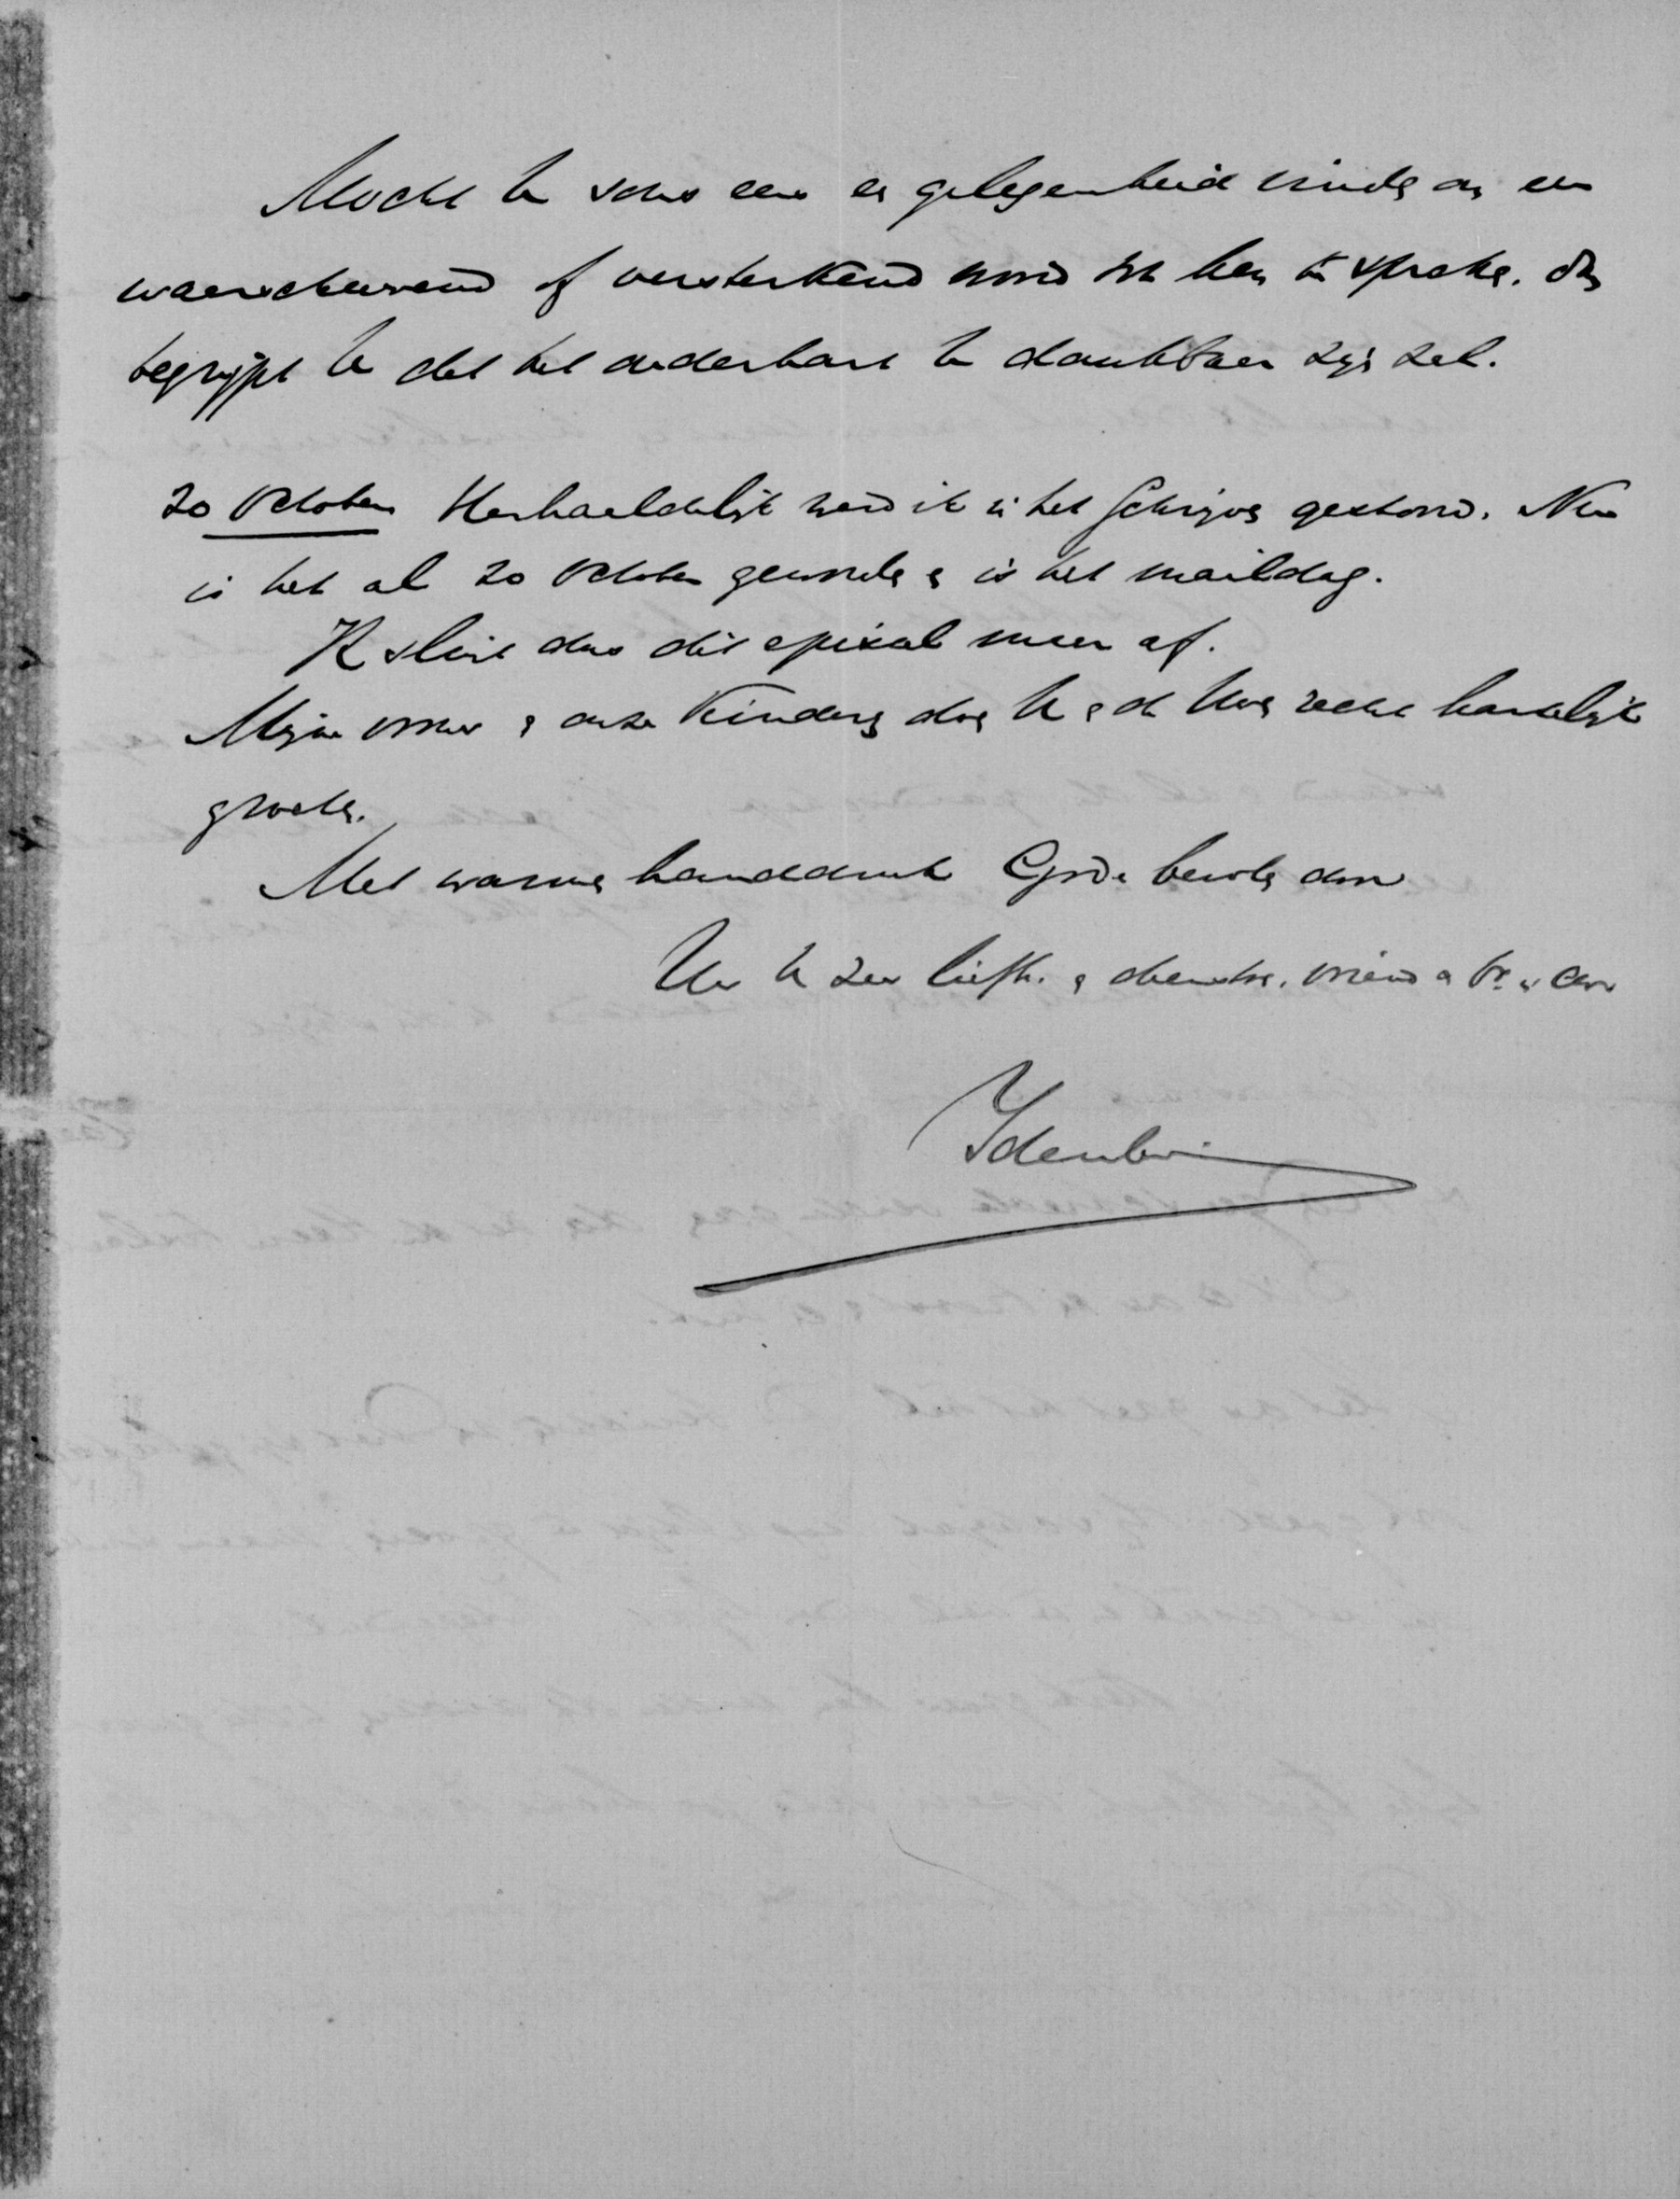 Mocht U soms eens er gelegenheid vinden om een
waarschuwend of versterkend woord tot hen te spreken, dan
begrijpt U dat het ouderhart U dankbaar zijn zal.
20 October Herhaaldelijk werd ik in het schrijven gestoord. Nu
is het al 20 October geworden & is het maildag.
Ik sluit dus dit epistel maar af.
Mijne vrouw & onze kinderen doen U & de Uwen recht hartelijk
groeten.
Met warmen handdruk Gode bevolen door
Uw U zeer liefh. & dienstw. vriend & br. in Chr.
Idenburg